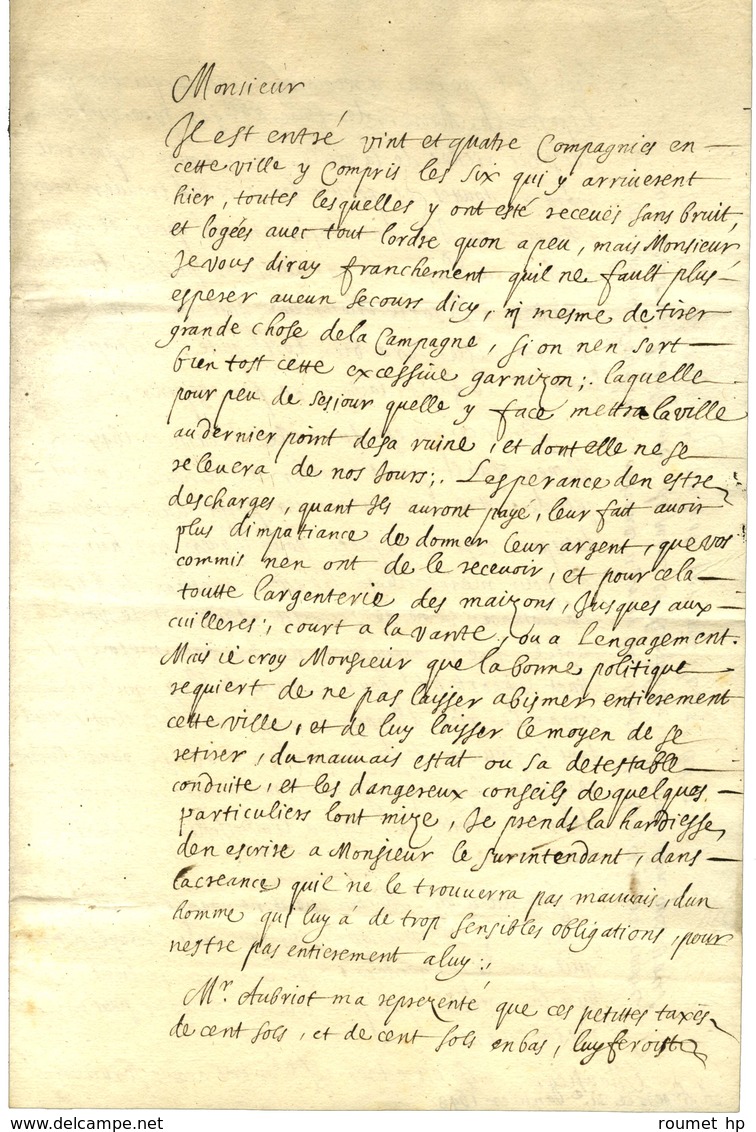 Monsieur
Il est entré vint et quatre Compagnies en
cette ville y Compris les six qui y arriverent
hier, toutes lesquelles y ont esté receuës sans bruit,
et logées avec tout lordre quon a peu, mais Monsieur
Je vous diray franchement quil ne fault plus
esperer aucun secours dicy, ny mesme de tirer
grande chose dela Campagne, si on nen sort
bien tost cette excessive garnizon; laquelle
pour peu de sesjour quelle y face mettra la ville
au dernier point desa ruine, et dont elle ne se
relevera de nos Jours; Lesperance den estre
descharges, quant Ils auront payé, leur fait avoir
plus dimpatiance de donner leur argent, que vos
commis nen ont de le recevoir, et pour cela
toutte largenterie des maizons, Jusques aux
cuilleres, court a la vante, ou a Lengagement.
Mais ie croy Monsieur que la bonne politique
requiert de ne pas laisser abismer entierement
cette ville, et de luy laisser le moyen de se
retirer, du mauvais estat ou sa detestable
conduite, et les dangereux conseils de quelques
particuliers lont mize, Je prends la hardiesse
den escrire a Monsieur le surintendant, dans
la creance quil ne le trouverra pas mauvais, dun
homme qui luy á de trop sensibles obligations, pour
nestre pas entierement a luy:,
Mr. Aubriot ma reprezenté que ces petittes taxes
de cent sols, et de cent sols en bas, luy feroist
roumet hp